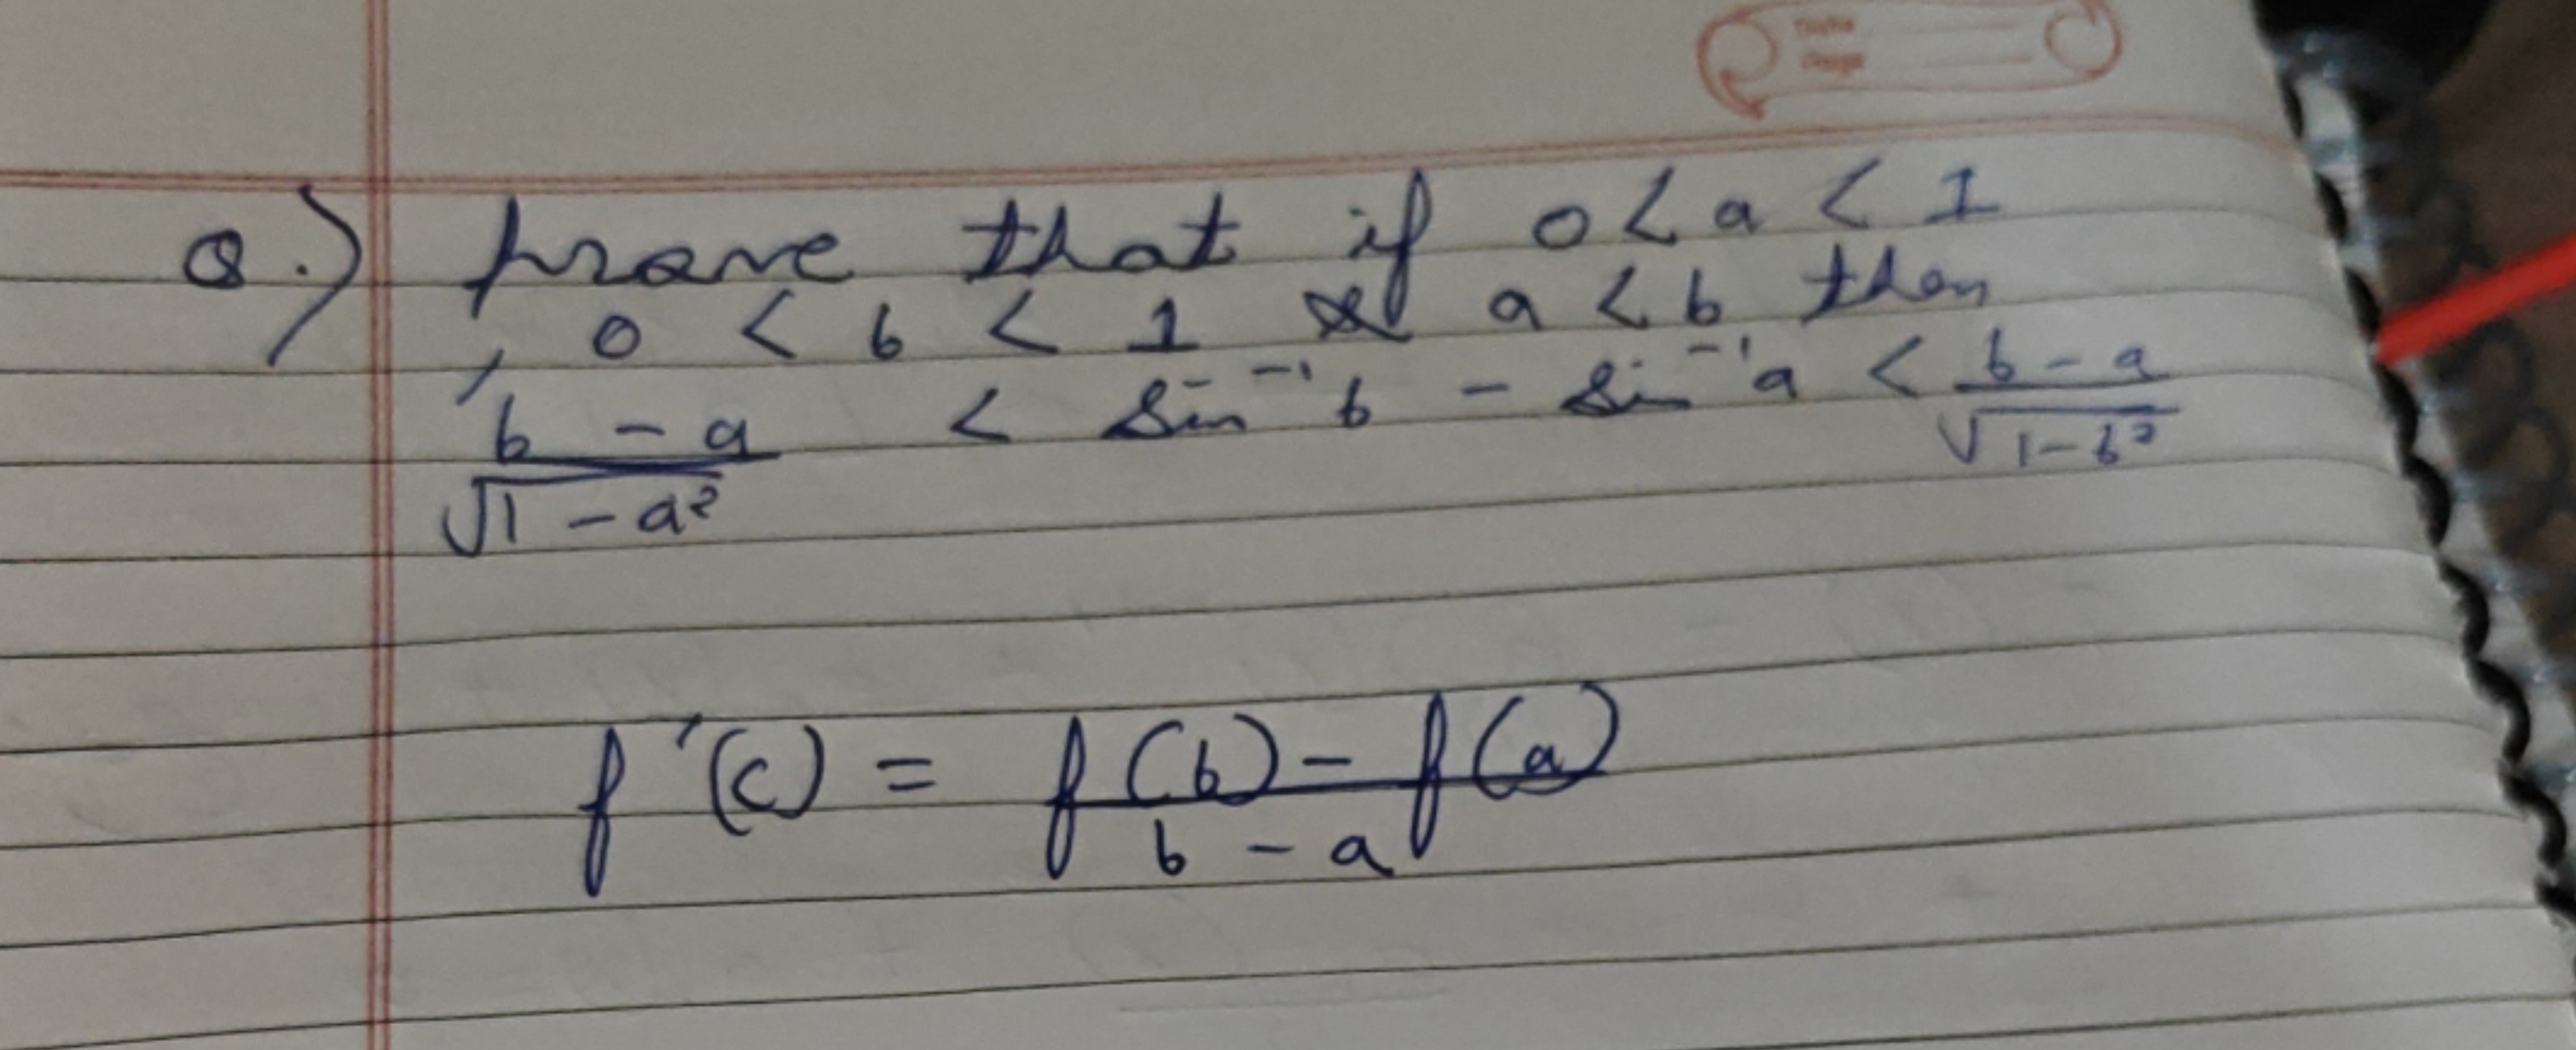 Q.) prove that if 0 < a < 1
, 0 < b < 1 & a < b then
b - a / √1 - a² < Sin⁻¹b - Sin⁻¹a < b - a / √1-b²
f'(c) = f(b) - f(a) / b - a